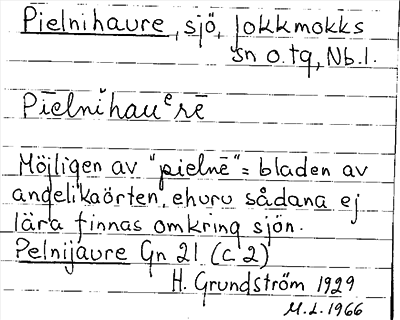 Pielnihaure, sjö, Jokkmokks
sn o. tq, Nb. l.
Pīelni̊hauᵉrē
Möjligen av "pielnē" = bladen av
angelikaörten, ehuru sådana ej
lära finnas omkring sjön.
Pelnijaure Gn 21 (C 2)
H. Grundström 1929
M.L. 1966